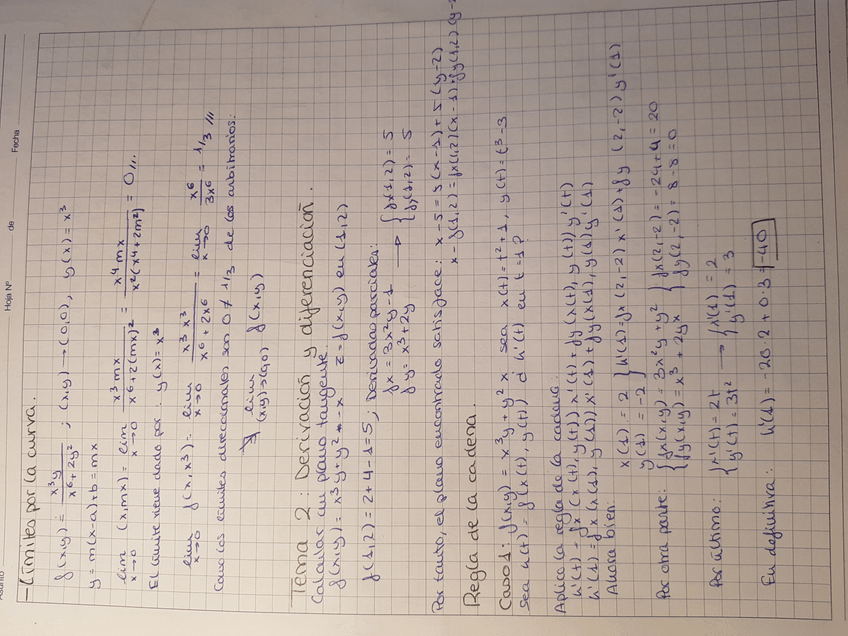 Asunto
Hoja Nº de Fecha
- Límites por la curva.
f(x,y) = x³y / x⁶ + 2y² ; (x,y) → (0,0), y(x) = x³
y = m(x-a) + b = mx
lim x→0 (x,mx) = lim x→0 x³mx / x⁶ + 2(mx)² = x⁴mx / x²(x⁴ + 2m²) = 0 //.
El límite viene dado por: y(x) = x³
lim x→0 f(x,x³) = lim x→0 x³x³ / x⁶ + 2x⁶ = lim x→0 x⁶ / 3x⁶ = 1/3 //.
Como los límites direccionales son 0 ≠ 1/3 de los arbitrarios:
∄ lim (x,y)→(0,0) f(x,y)
Tema 2: Derivación y diferenciación.
Calcular un plano tangente
f(x,y) = x³y + y² - x z = f(x,y) en (1,2)
f(1,2) = 2+4-1 = 5 ; Derivadas parciales:
fx = 3x²y - 1
fy = x³ + 2y → { fx(1,2) = 5
fy(1,2) = 5
Por tanto, el plano encontrado satisface: x - 5 = 3(x-1) + 5(y-2)
x - f(1,2) = fx(1,2)(x-1) + fy(1,2)(y-2
Regla de la cadena.
Caso 1: f(x,y) = x³y + y²x sea x(t) = t²+1, y(t) = t³-3
sea h(t) = f(x(t), y(t)) ¿ h'(t) en t=1?
Aplico la regla de la cadena:
h'(t) = fx(x(t), y(t)) x'(t) + fy(x(t), y(t)) y'(t)
h'(1) = fx(x(1), y(1)) x'(1) + fy(x(1), y(1)) y'(1)
Ahora bien:
x(1) = 2
y(1) = -2 } h'(1) = fx(2,-2) x'(1) + fy(2,-2) y'(1)
Por otra parte: { fx(x,y) = 3x²y + y² } fx(2,-2) = -24+4 = 20
{ fy(x,y) = x³ + 2yx } fy(2,-2) = 8-8 = 0
Por último: { x'(t) = 2t
y'(t) = 3t² → { x'(1) = 2
y'(1) = 3
En definitiva: h'(1) = -20·2 + 0·3 = -40